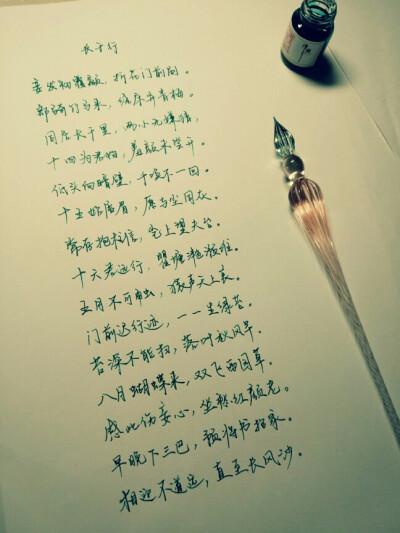 长干行
妾发初覆额，折花门前剧。
郎骑竹马来，绕床弄青梅。
同居长干里，两小无嫌猜，
十四为君妇，羞颜未尝开。
低头向暗壁，千唤不一回。
十五始展眉，愿与尘同灰。
常存抱柱信，岂上望夫台。
十六君远行，瞿塘滟滪堆。
五月不可触，猿声天上哀。
门前迟行迹，一一生绿苔。
苔深不能扫，落叶秋风早。
八月蝴蝶来，双飞西园草。
感此伤妾心，坐愁红颜老。
早晚下三巴，预将书报家。
相迎不道远，直至长风沙。